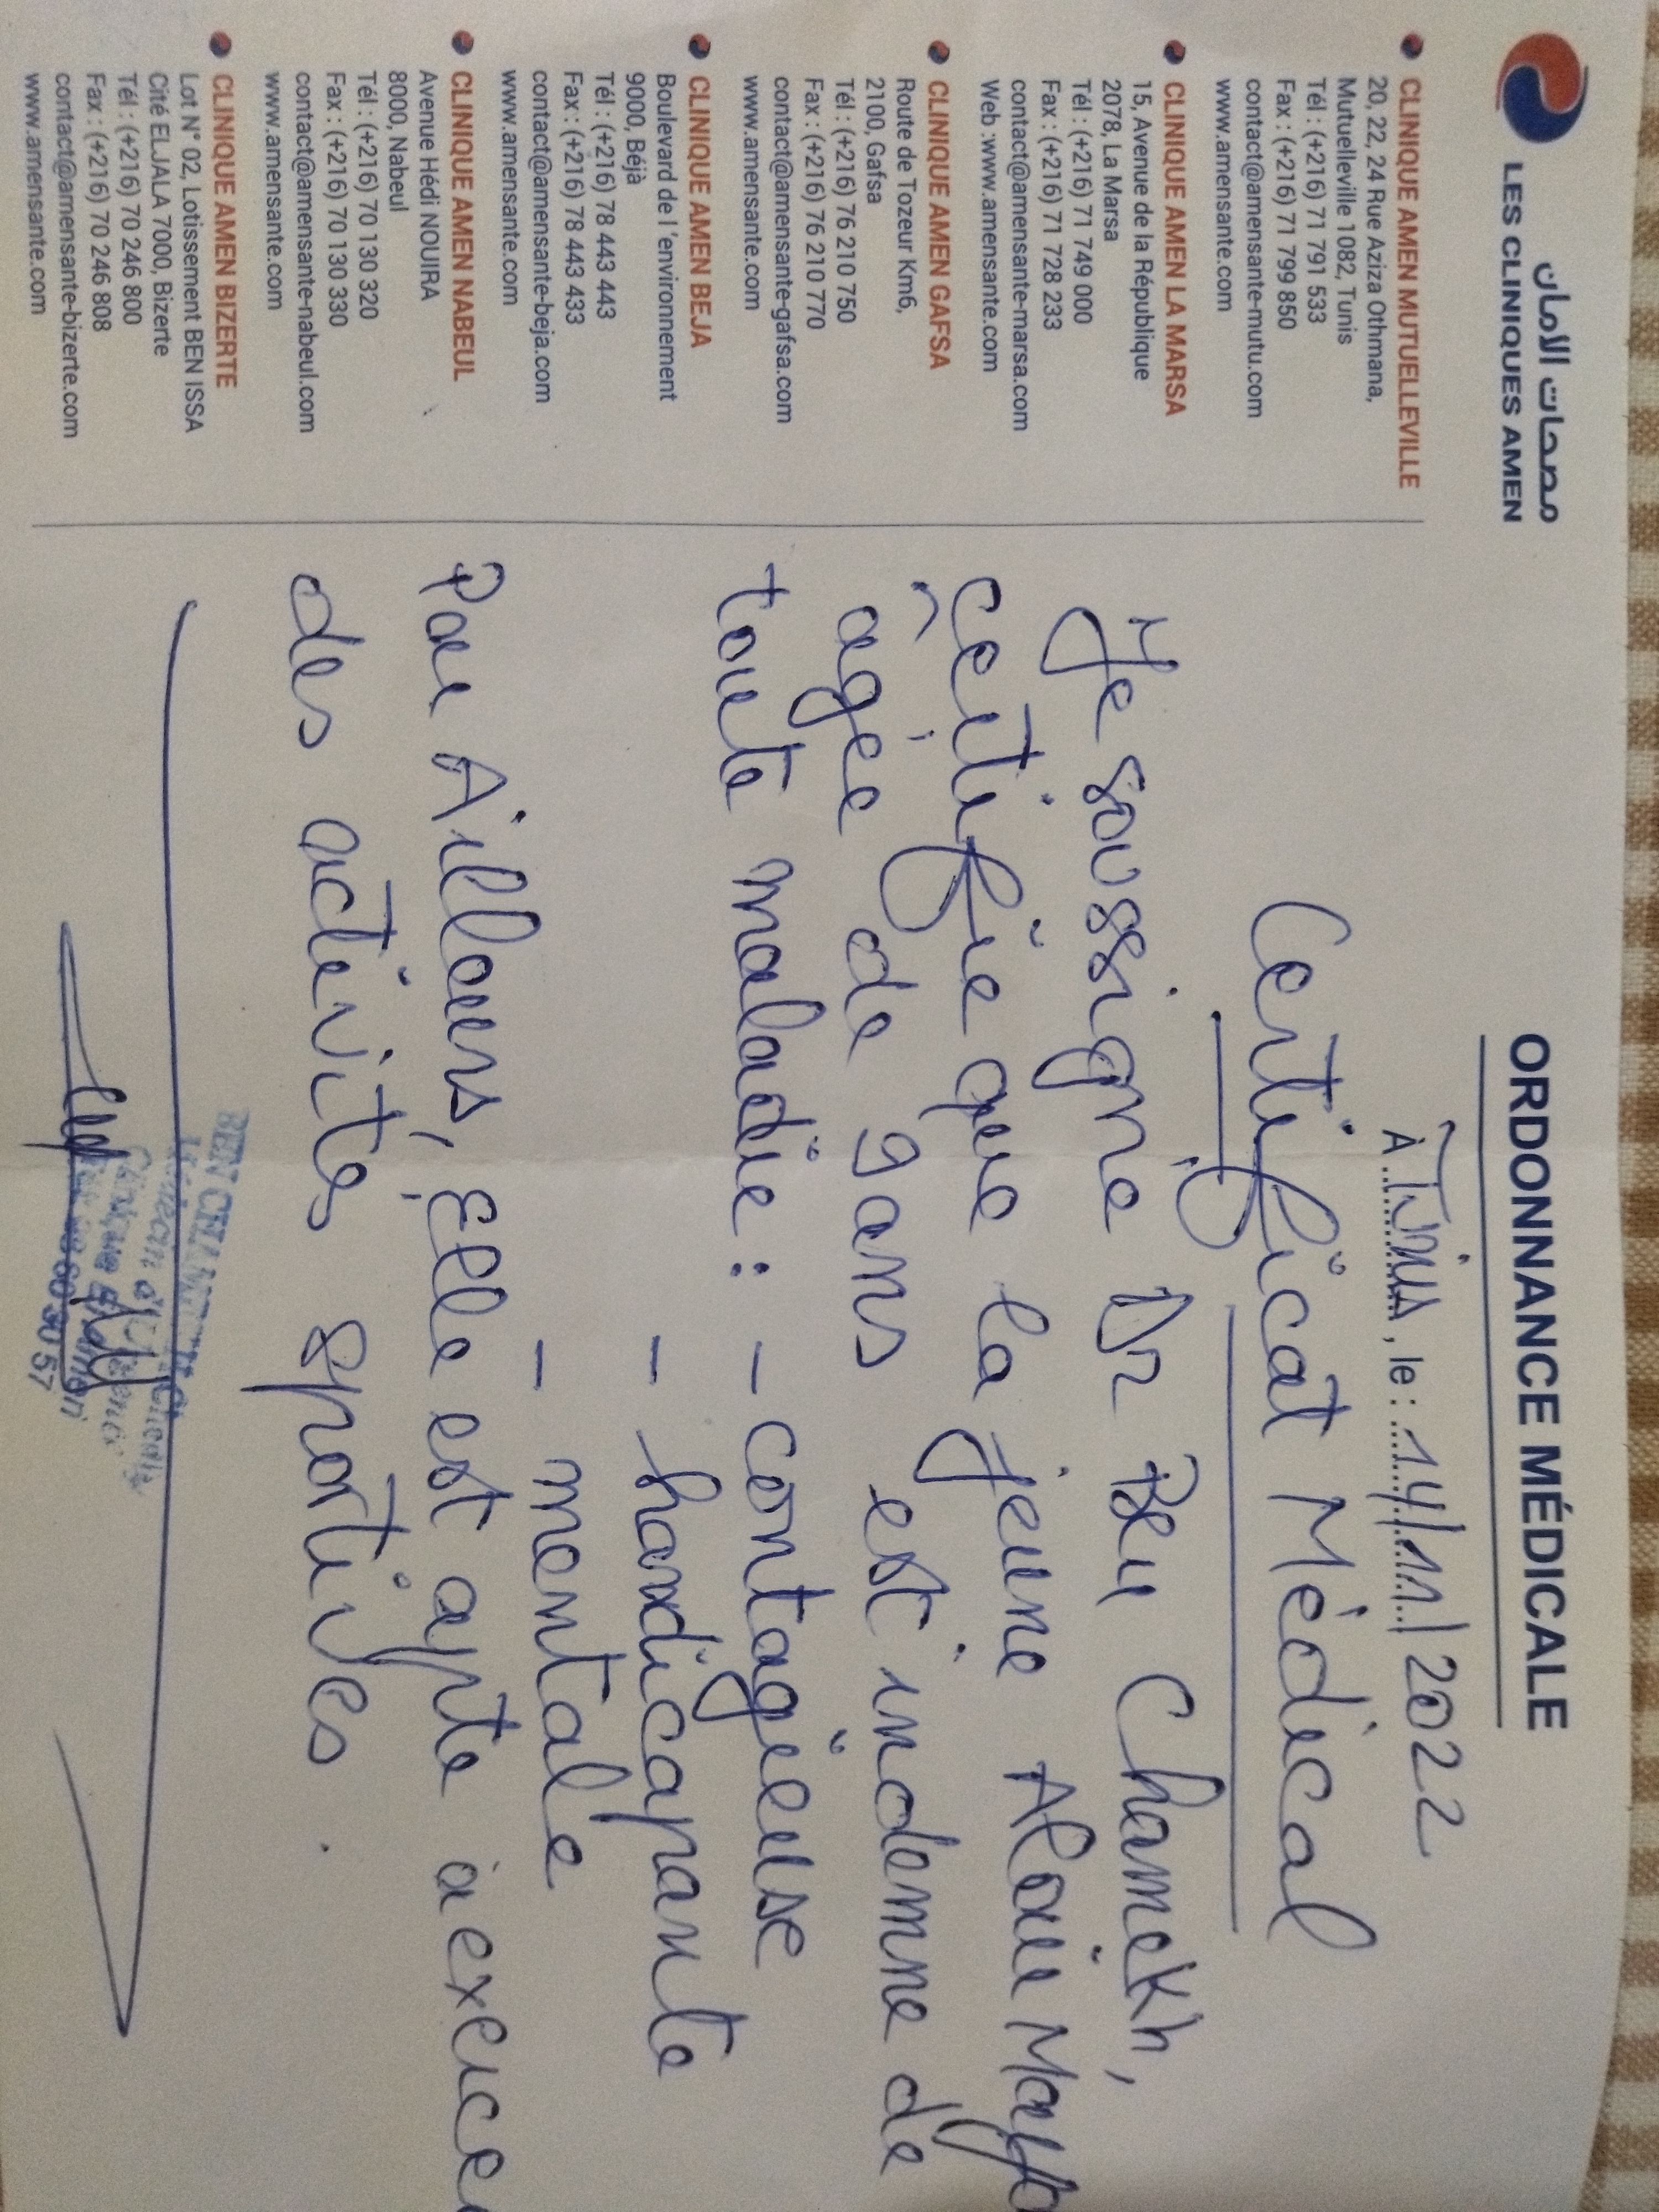 مصحات الامان
LES CLINIQUES AMEN
ORDONNANCE MÉDICALE
CLINIQUE AMEN MUTUELLEVILLE
20, 22, 24 Rue Aziza Othmana,
Mutuelleville 1082, Tunis
Tél : (+216) 71 791 533
Fax : (+216) 71 799 850
contact@amensante-mutu.com
www.amensante.com
CLINIQUE AMEN LA MARSA
15, Avenue de la République
2078, La Marsa
Tél : (+216) 71 749 000
Fax : (+216) 71 728 233
contact@amensante-marsa.com
Web :www.amensante.com
CLINIQUE AMEN GAFSA
Route de Tozeur Km6,
2100, Gafsa
Tél : (+216) 76 210 750
Fax : (+216) 76 210 770
contact@amensante-gafsa.com
www.amensante.com
CLINIQUE AMEN BEJA
Boulevard de l'environnement
9000, Béjà
Tél : (+216) 78 443 443
Fax : (+216) 78 443 433
contact@amensante-beja.com
www.amensante.com
CLINIQUE AMEN NABEUL
Avenue Hédi NOUIRA
8000, Nabeul
Tél : (+216) 70 130 320
Fax : (+216) 70 130 330
contact@amensante-nabeul.com
www.amensante.com
CLINIQUE AMEN BIZERTE
Lot N° 02, Lotissement BEN ISSA
Cité ELJALA 7000, Bizerte
Tél : (+216) 70 246 800
Fax : (+216) 70 246 808
contact@amensante-bizerte.com
www.amensante.com
À Tunis, le : 14/11/2022
Certificat Médical
Je soussigne Dr Ben Chameikh,
certifie que la jeune
agée de 9 ans est indemne de
toute maladie : - contagieuse
- handicapante
- mentale
Par Ailleurs, Elle est apte à exercer
des activités sportives.
BEN